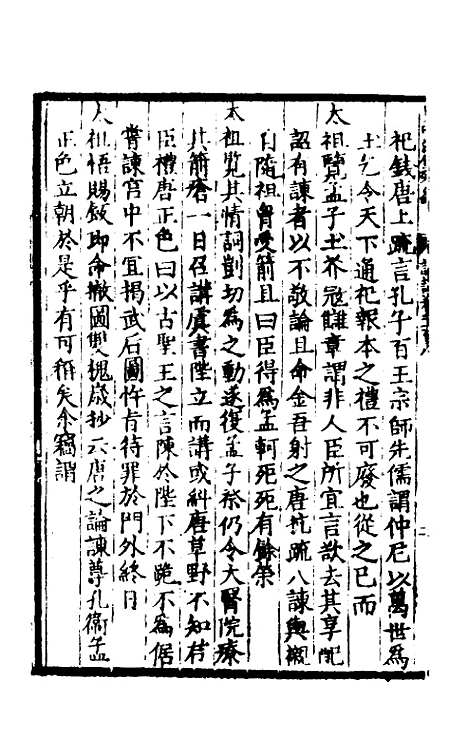 祀錢唐上疏言孔子百王宗師先儒謂仲尼以萬世為
土乞令天下通祀報本之禮不可廢也從之已而
太祖覽孟子土芥寇讎章謂非人臣所宜言欲去其享配
詔有諫者以不敬論且命金吾射之唐抗疏入諫輿櫬
自隨袒胷受箭且曰臣得為孟軻死死有餘榮
太祖覽其情詞剴切為之動遂復孟子祭仍令太醫院療
其箭瘡一日召講虞書陛立而講或糾唐草野不知君
臣禮唐正色曰以古聖王之言陳於陛下不跪不為倨
嘗諫宫中不宜揭武后圖忤肯待罪於門外終日
太祖悟賜飲即命撤圖雙槐歲抄云唐之論諫尊孔衛孟
正色立朝於是乎有可稱矣余竊謂